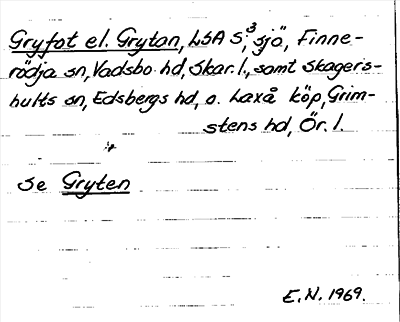 Gryfot el. Grytan, LSA S,³ sjö, Finne-
rödja sn, Vadsbo hd, Skar. l., samt Skagers-
hults sn, Edsbergs hd, o. Laxå köp, Grim-
stens hd, Ör. l.
Se Gryten
E.N. 1969.